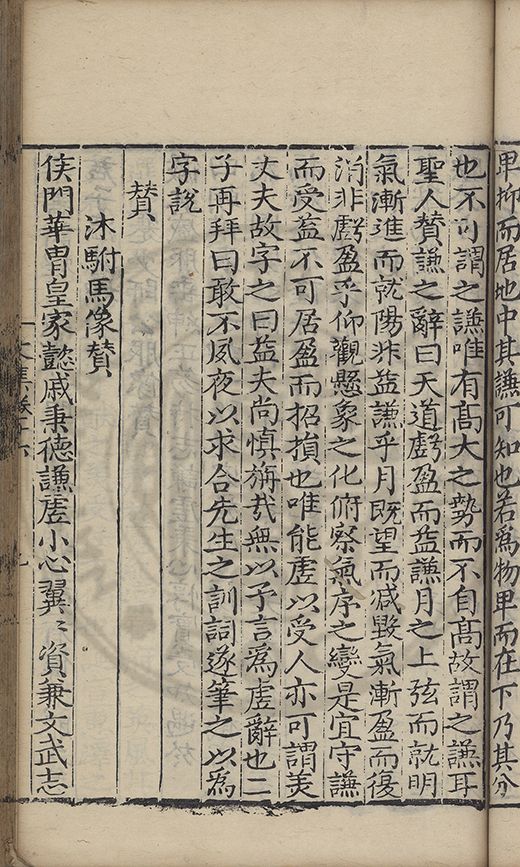 卑抑而居地中其謙可知也若爲物卑而在下乃其分
也不可謂之謙唯有髙大之勢而不自髙故謂之謙耳
聖人賛謙之辭曰天道虧盈而益謙月之上弦而就明
氣漸進而就陽非益謙乎月既望而減毀氣漸盈而復
消非虧盈乎仰觀懸象之化俯察氣序之變是宜守謙
而受益不可居盈而招損也唯能虛以受人亦可謂美
丈夫故字之曰益夫尚慎旃哉無以予言爲虛辭也二
子再拜曰敢不夙夜以求合先生之訓詞遂筆之以爲
字說
賛
沐駙馬像賛
侯門華冑皇家懿戚秉德謙虛小心翼〻資兼文武志